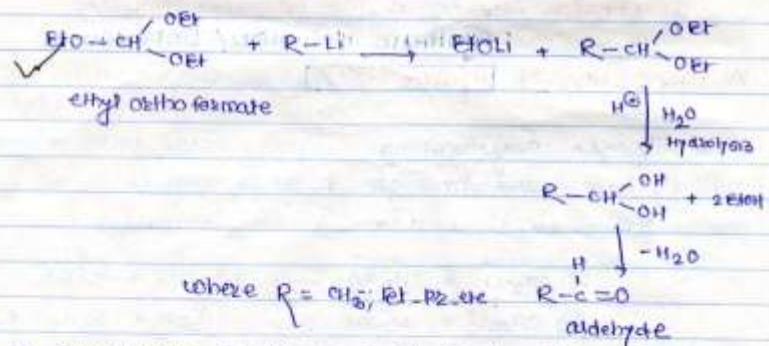 OEt
EtO-CH + R-Li → EtOLi + R-CH OEt
OEt OEt
ethyl ortho formate
H⊕ H2O
Hydrolysis
R-CH OH + 2EtOH
OH
-H2O
H
where R = CH3; Et- Pr- etc. R-C=O
aldehyde